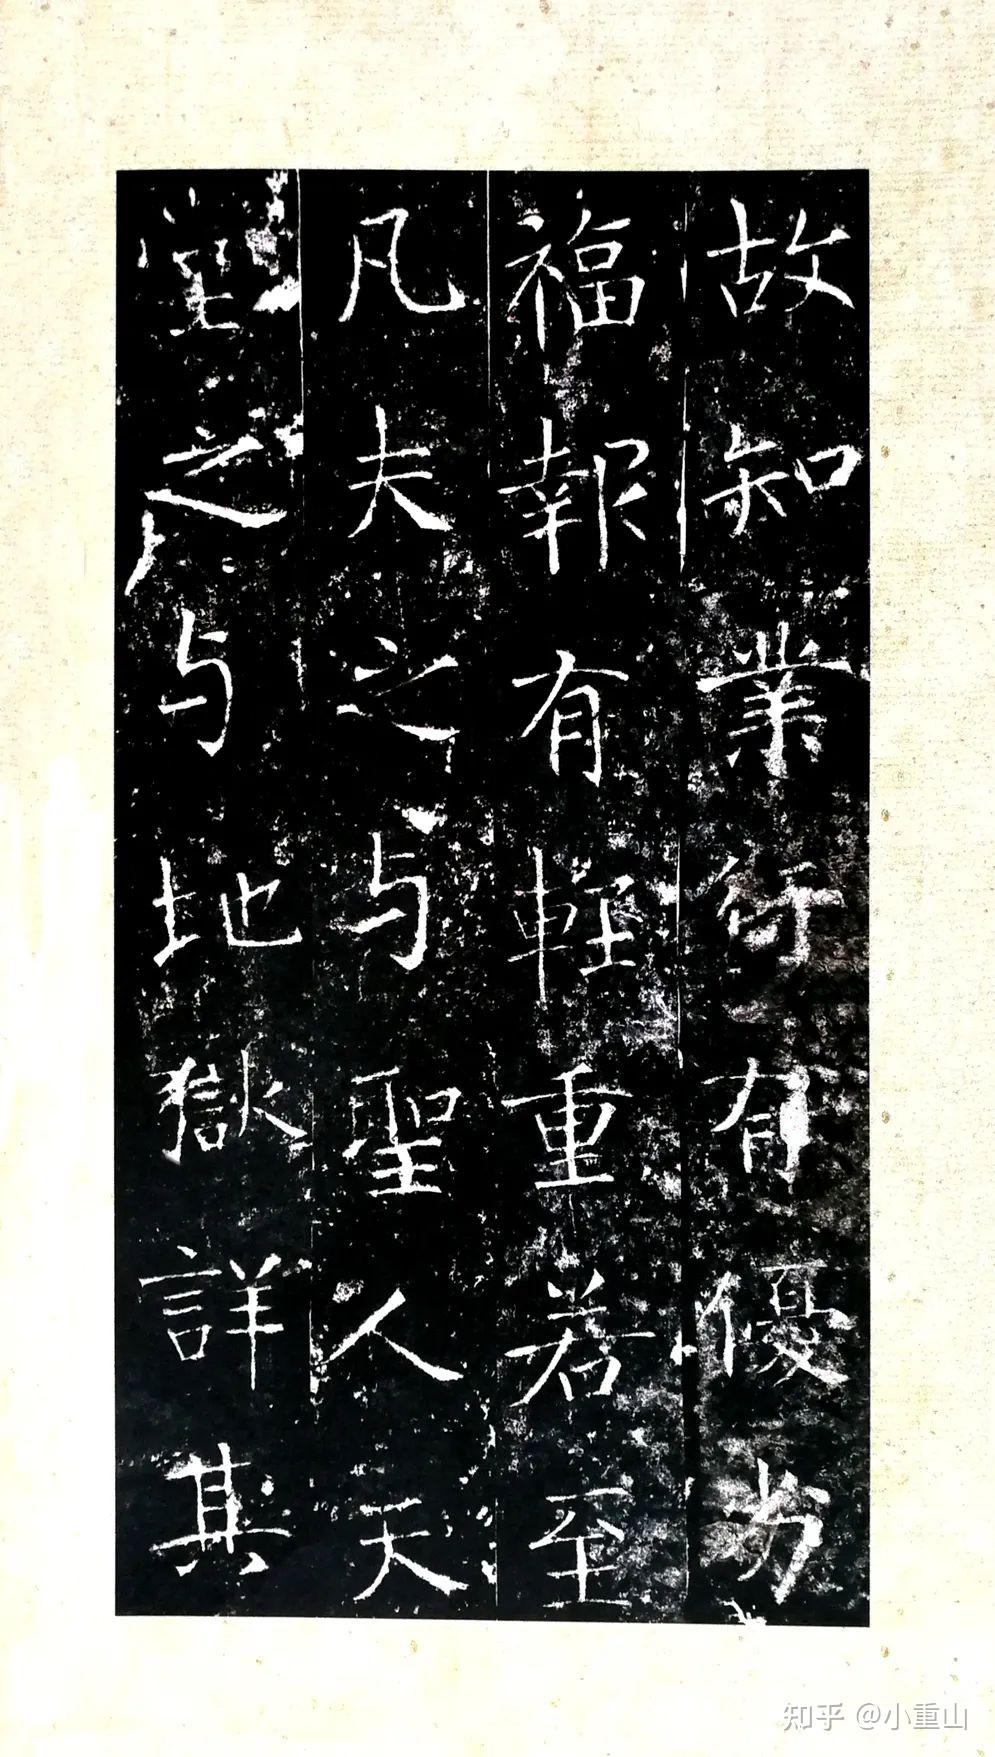 故知業行有優劣
福報有輕重若至
凡夫之与聖人天
堂之与地獄詳其
知乎 @小重山